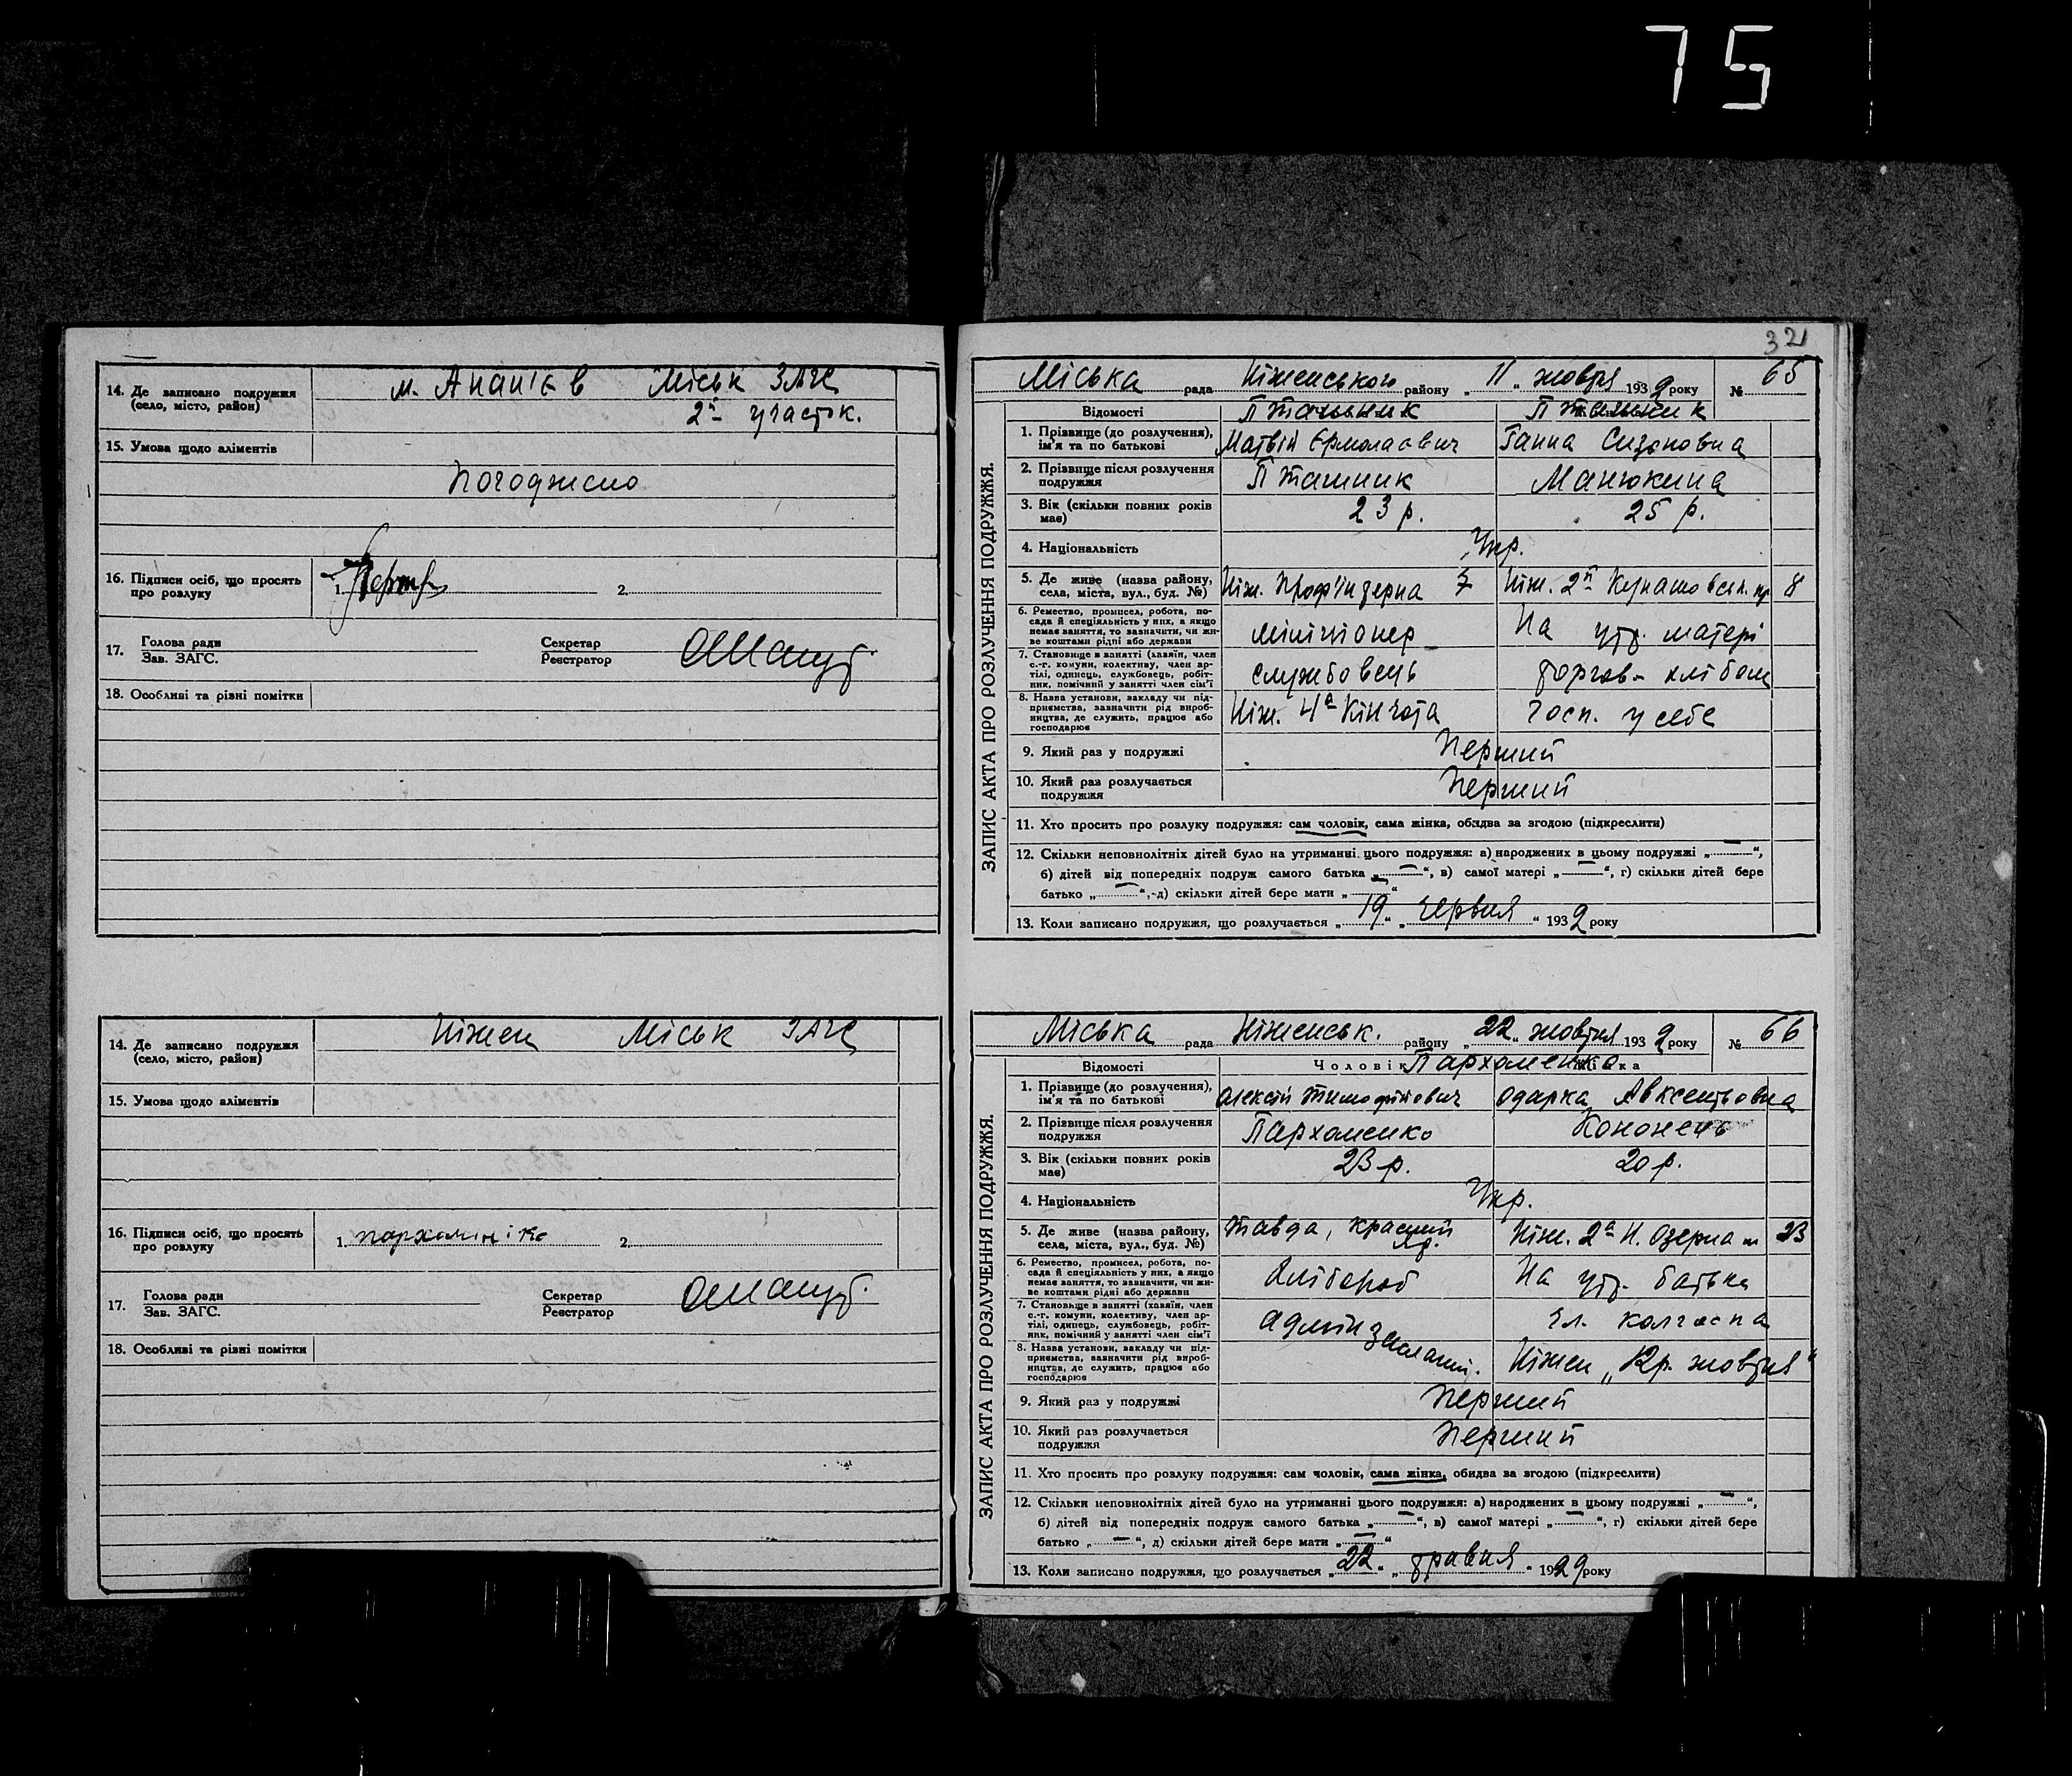 75
14. Де записано подружжя (село, місто, район) м. Ананіев Міськ ЗАГС
2й участок.
15. Умова щодо аліментів
Погоджено
16. Підписи осіб, що просять про розлуку 1. 2.
17. Голова ради Зав. ЗАГС. Секретар Реєстратор
18. Особливі та різні помітки
14. Де записано подружжя (село, місто, район) Ніжен Міськ ЗАГС
15. Умова щодо аліментів
16. Підписи осіб, що просять про розлуку 1. пархомініко 2.
17. Голова ради Зав. ЗАГС. Секретар Реєстратор
18. Особливі та різні помітки
321
ЗАПИС АКТА ПРО РОЗЛУЧЕННЯ ПОДРУЖЖЯ.
Міська рада Ніженського району „11„ жовтня 1932 року № 65
Відомості Пташник Пташник
1. Прізвище (до розлучення), ім'я та по батькові Матвій Єрмолаєвич Ганна Сизоновна
2. Прізвище після розлучення подружжя Пташник Манюкина
3. Вік (скільки повних років має) 23 р. 25 р.
4. Національність Укр.
5. Де живе (назва району, села, міста, вул., буд. №) Ніж. Профінтерна 7 Ніж. 2й 8
6. Ремество, промисел, робота, посада й спеціяльність у них, а якщо немає заняття, то зазначити, чи живе коштами рідні або держави міліціонер На утр. матері
7. Становище в занятті (хазяїн, член с.-г. комуни, колективу, член артілі, одинець, службовець, робітник, помічний у занятті член сім'ї службовець торгов- хлібом
8. Назва установи, закладу чи підприємства, зазначити рід виробництва, де служить, працює або господарює Ніж. 4а Кінчота госп. у себе
9. Який раз у подружжі Перший
10. Який раз розлучається подружжя Перший
11. Хто просить про розлуку подружжя: сам чоловік, сама жінка, обидва за згодою (підкреслити)
12. Скільки неповнолітніх дітей було на утриманні цього подружжя: а) народжених в цьому подружжі „—“,
б) дітей від попередніх подруж самого батька „—“, в) самої матері „—“, г) скільки дітей бере
батько „—“, д) скільки дітей бере мати „—“
13. Коли записано подружжя, що розлучається „19“ „червня“ 1932 року
ЗАПИС АКТА ПРО РОЗЛУЧЕННЯ ПОДРУЖЖЯ.
Міська рада Ніженськ. району „22„ жовтня 1932 року № 66
Відомості Чоловік Пархоменко Жінка
1. Прізвище (до розлучення), ім'я та по батькові Олексій Тимофійович Одарка Авксентьовна
2. Прізвище після розлучення подружжя Пархоменко Кононець
3. Вік (скільки повних років має) 23 р. 20 р.
4. Національність Укр.
5. Де живе (назва району, села, міста, вул., буд. №) Тавда, Красний Яр. Ніж. 2а Н. Озерна 23
6. Ремество, промисел, робота, посада й спеціяльність у них, а якщо немає заняття, то зазначити, чи живе коштами рідні або держави Хлібороб На утр. батька
7. Становище в занятті (хазяїн, член с.-г. комуни, колективу, член артілі, одинець, службовець, робітник, помічний у занятті член сім'ї Адмін чл. колгоспа
8. Назва установи, закладу чи підприємства, зазначити рід виробництва, де служить, працює або господарює Ніжен „12р. жовтня“
9. Який раз у подружжі Перший
10. Який раз розлучається подружжя Перший
11. Хто просить про розлуку подружжя: сам чоловік, сама жінка, обидва за згодою (підкреслити)
12. Скільки неповнолітніх дітей було на утриманні цього подружжя: а) народжених в цьому подружжі „—“,
б) дітей від попередніх подруж самого батька „—“, в) самої матері „—“, г) скільки дітей бере
батько „—“, д) скільки дітей бере мати „—“
13. Коли записано подружжя, що розлучається „22“ „травня“ 1929 року